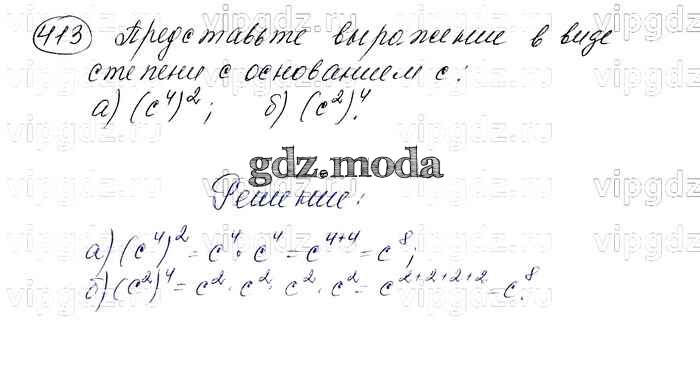 413 Представьте выражение в виде
степени с основанием с:
а) (c⁴)²; б) (c²)⁴.
gdz.moda
Решение:
а) (c⁴)² = c⁴ · c⁴ = c⁴⁺⁴ = c⁸;
б) (c²)⁴ = c² · c² · c² · c² = c²⁺²⁺²⁺² = c⁸.